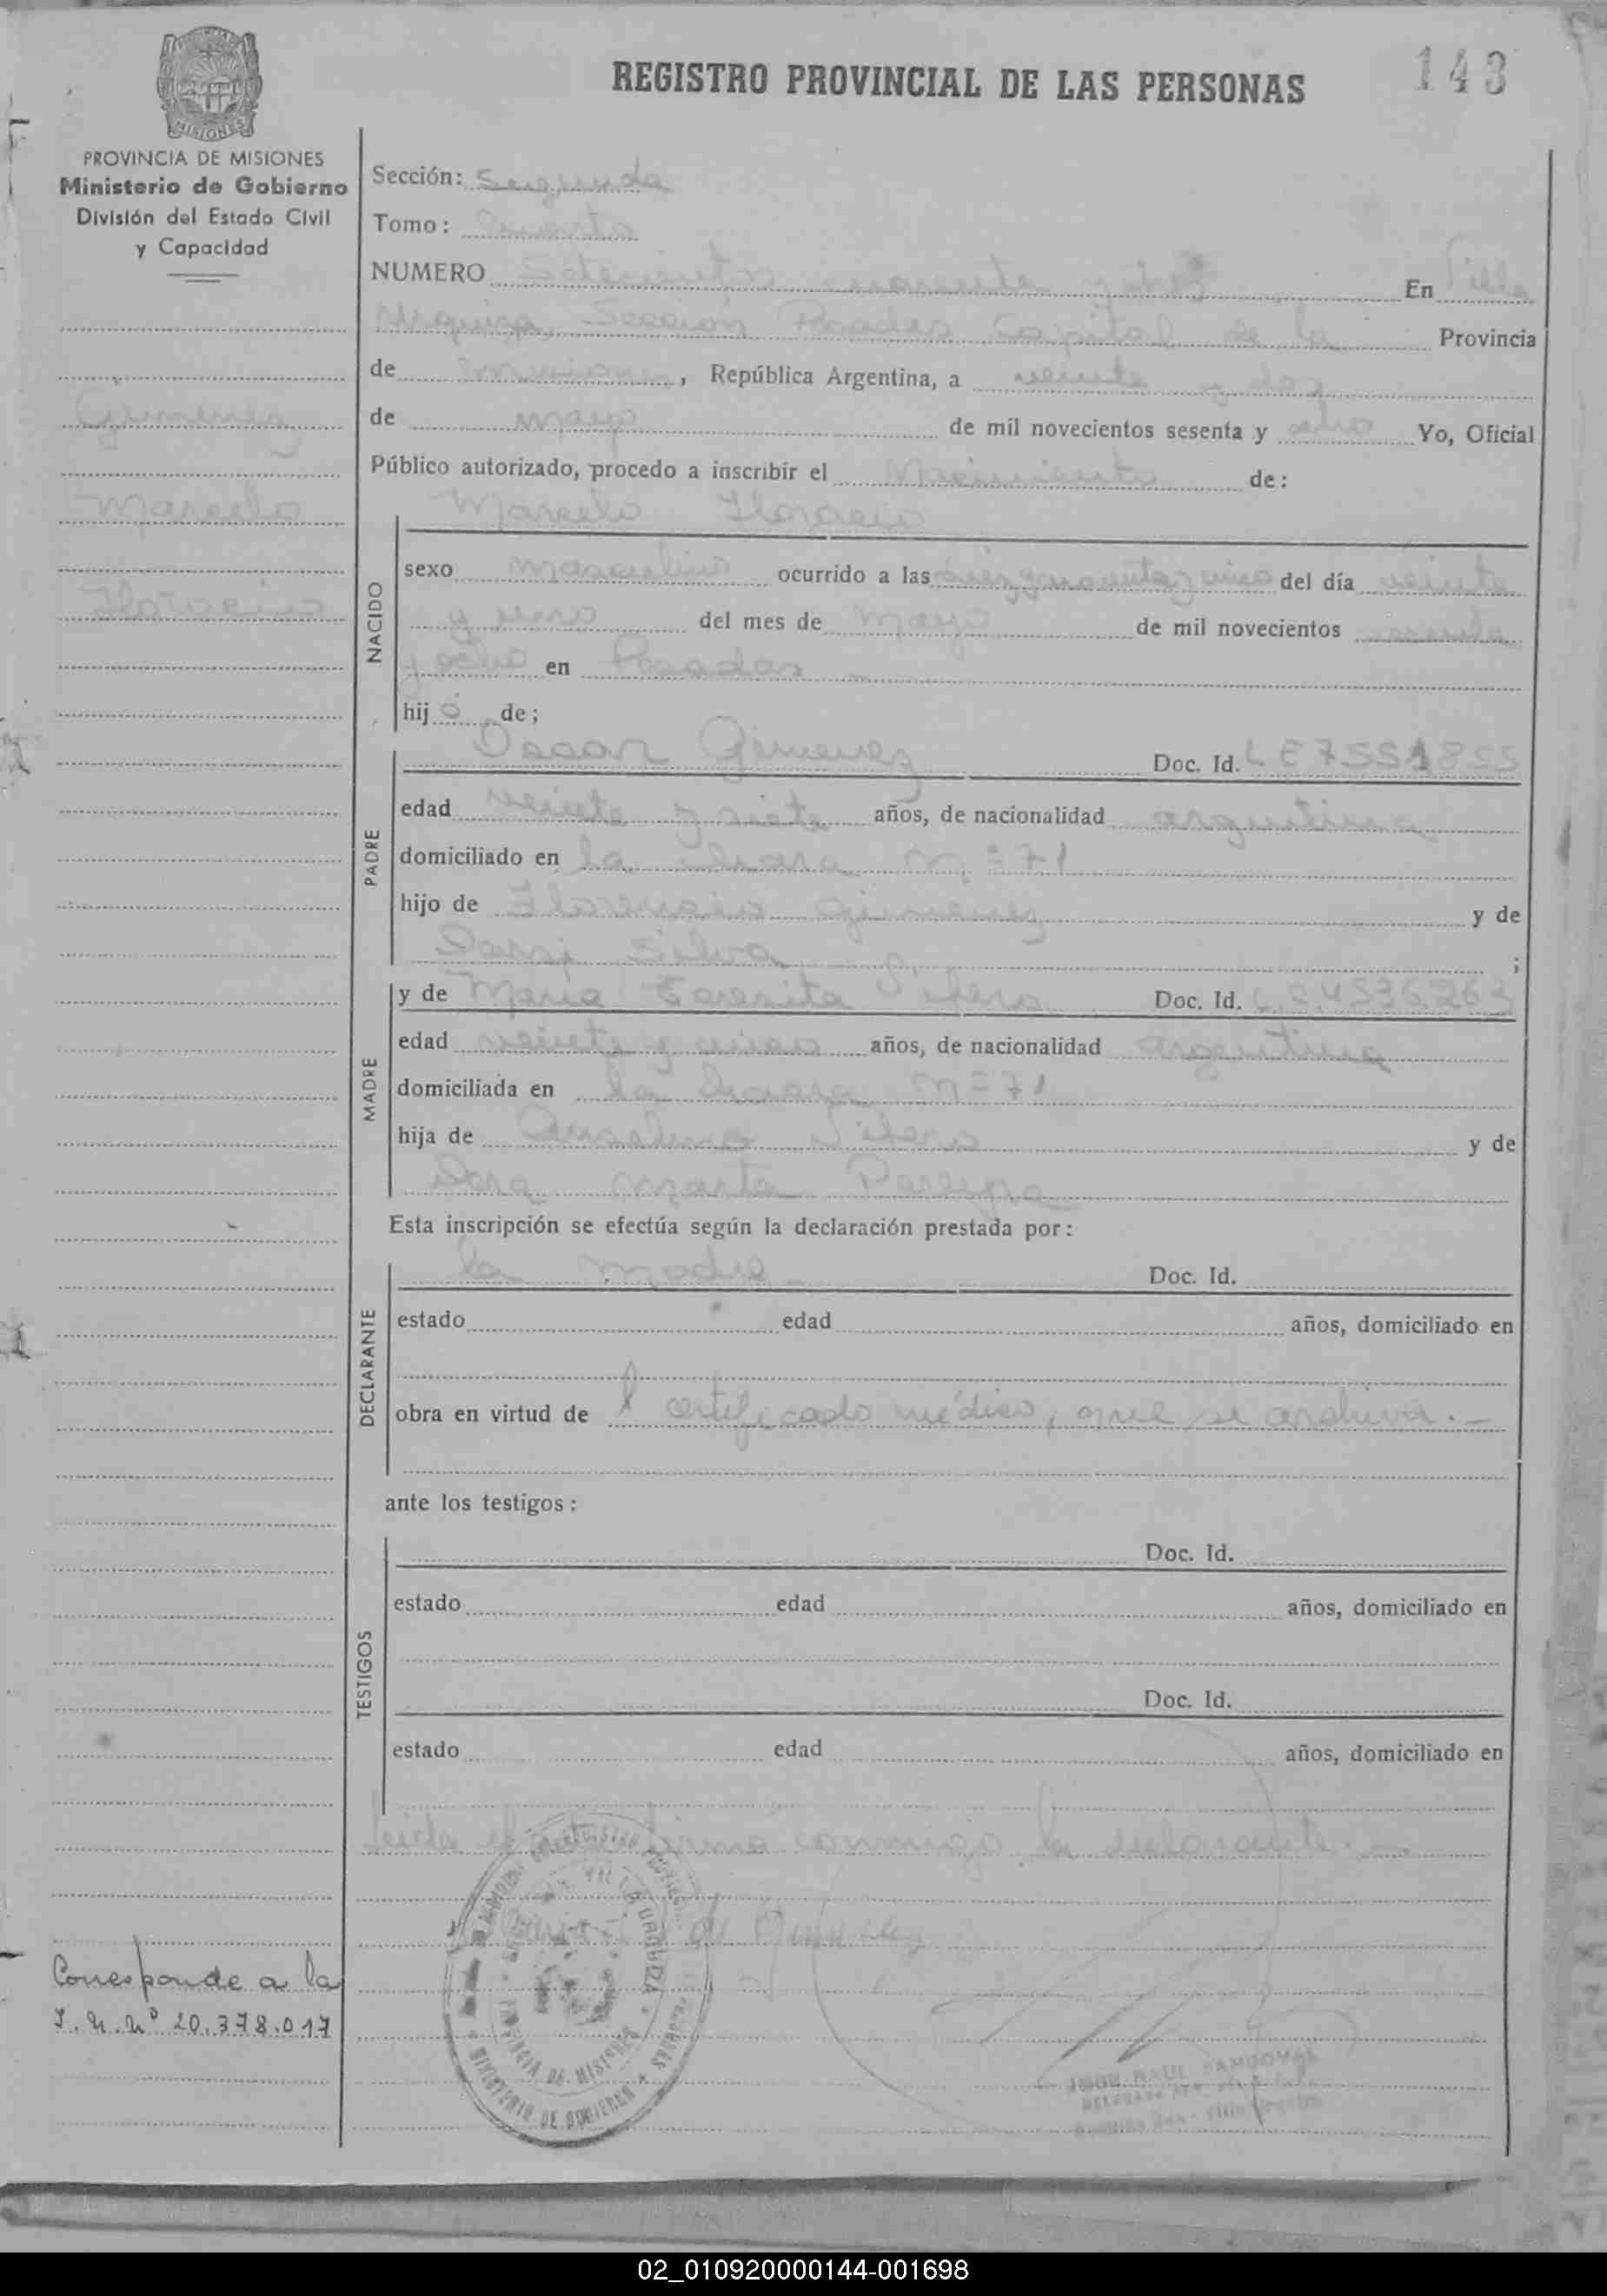 REGISTRO PROVINCIAL DE LAS PERSONAS
143
MISIONES
PROVINCIA DE MISIONES
Ministerio de Gobierno
División del Estado Civil
y Capacidad
Gimenez
Marcelo
Horacio
Corresponde a la
I.N.Nº 20.378.017
Sección: Segunda
Tomo: Cuarto
NUMERO Setecientos cuarenta y tres En Villa
Urquiza, Sección Posadas Capital de la Provincia
de Misiones, República Argentina, a veinte y dos
de mayo de mil novecientos sesenta y ocho Yo, Oficial
Público autorizado, procedo a inscribir el Nacimiento de:
Marcelo Horacio
NACIDO
sexo masculino ocurrido a las del día veinte
y uno del mes de mayo de mil novecientos sesenta
y ocho en Posadas
hijo de;
PADRE
Oscar Gimenez Doc. Id. L E 7551855
edad veinte y siete años, de nacionalidad argentina
domiciliado en la chacra Nº 71
hijo de Florencio Gimenez y de
Silva ;
MADRE
y de Maria Doc. Id.
edad veinte y cinco años, de nacionalidad argentina
domiciliada en la chacra Nº 71
hija de Anselmo y de
Marta Pereyra
Esta inscripción se efectúa según la declaración prestada por:
DECLARANTE
la madre Doc. Id.
estado edad años, domiciliado en
obra en virtud de l certificado médico, que se archiva.-
ante los testigos:
TESTIGOS
Doc. Id.
estado edad años, domiciliado en
Doc. Id.
estado edad años, domiciliado en
Leida el acta firma conmigo la declarante.-
de Gimenez
MINISTERIO DE GOBIERNO
PROVINCIA DE MISIONES
RAUL SANDOVAL
02_010920000144-001698